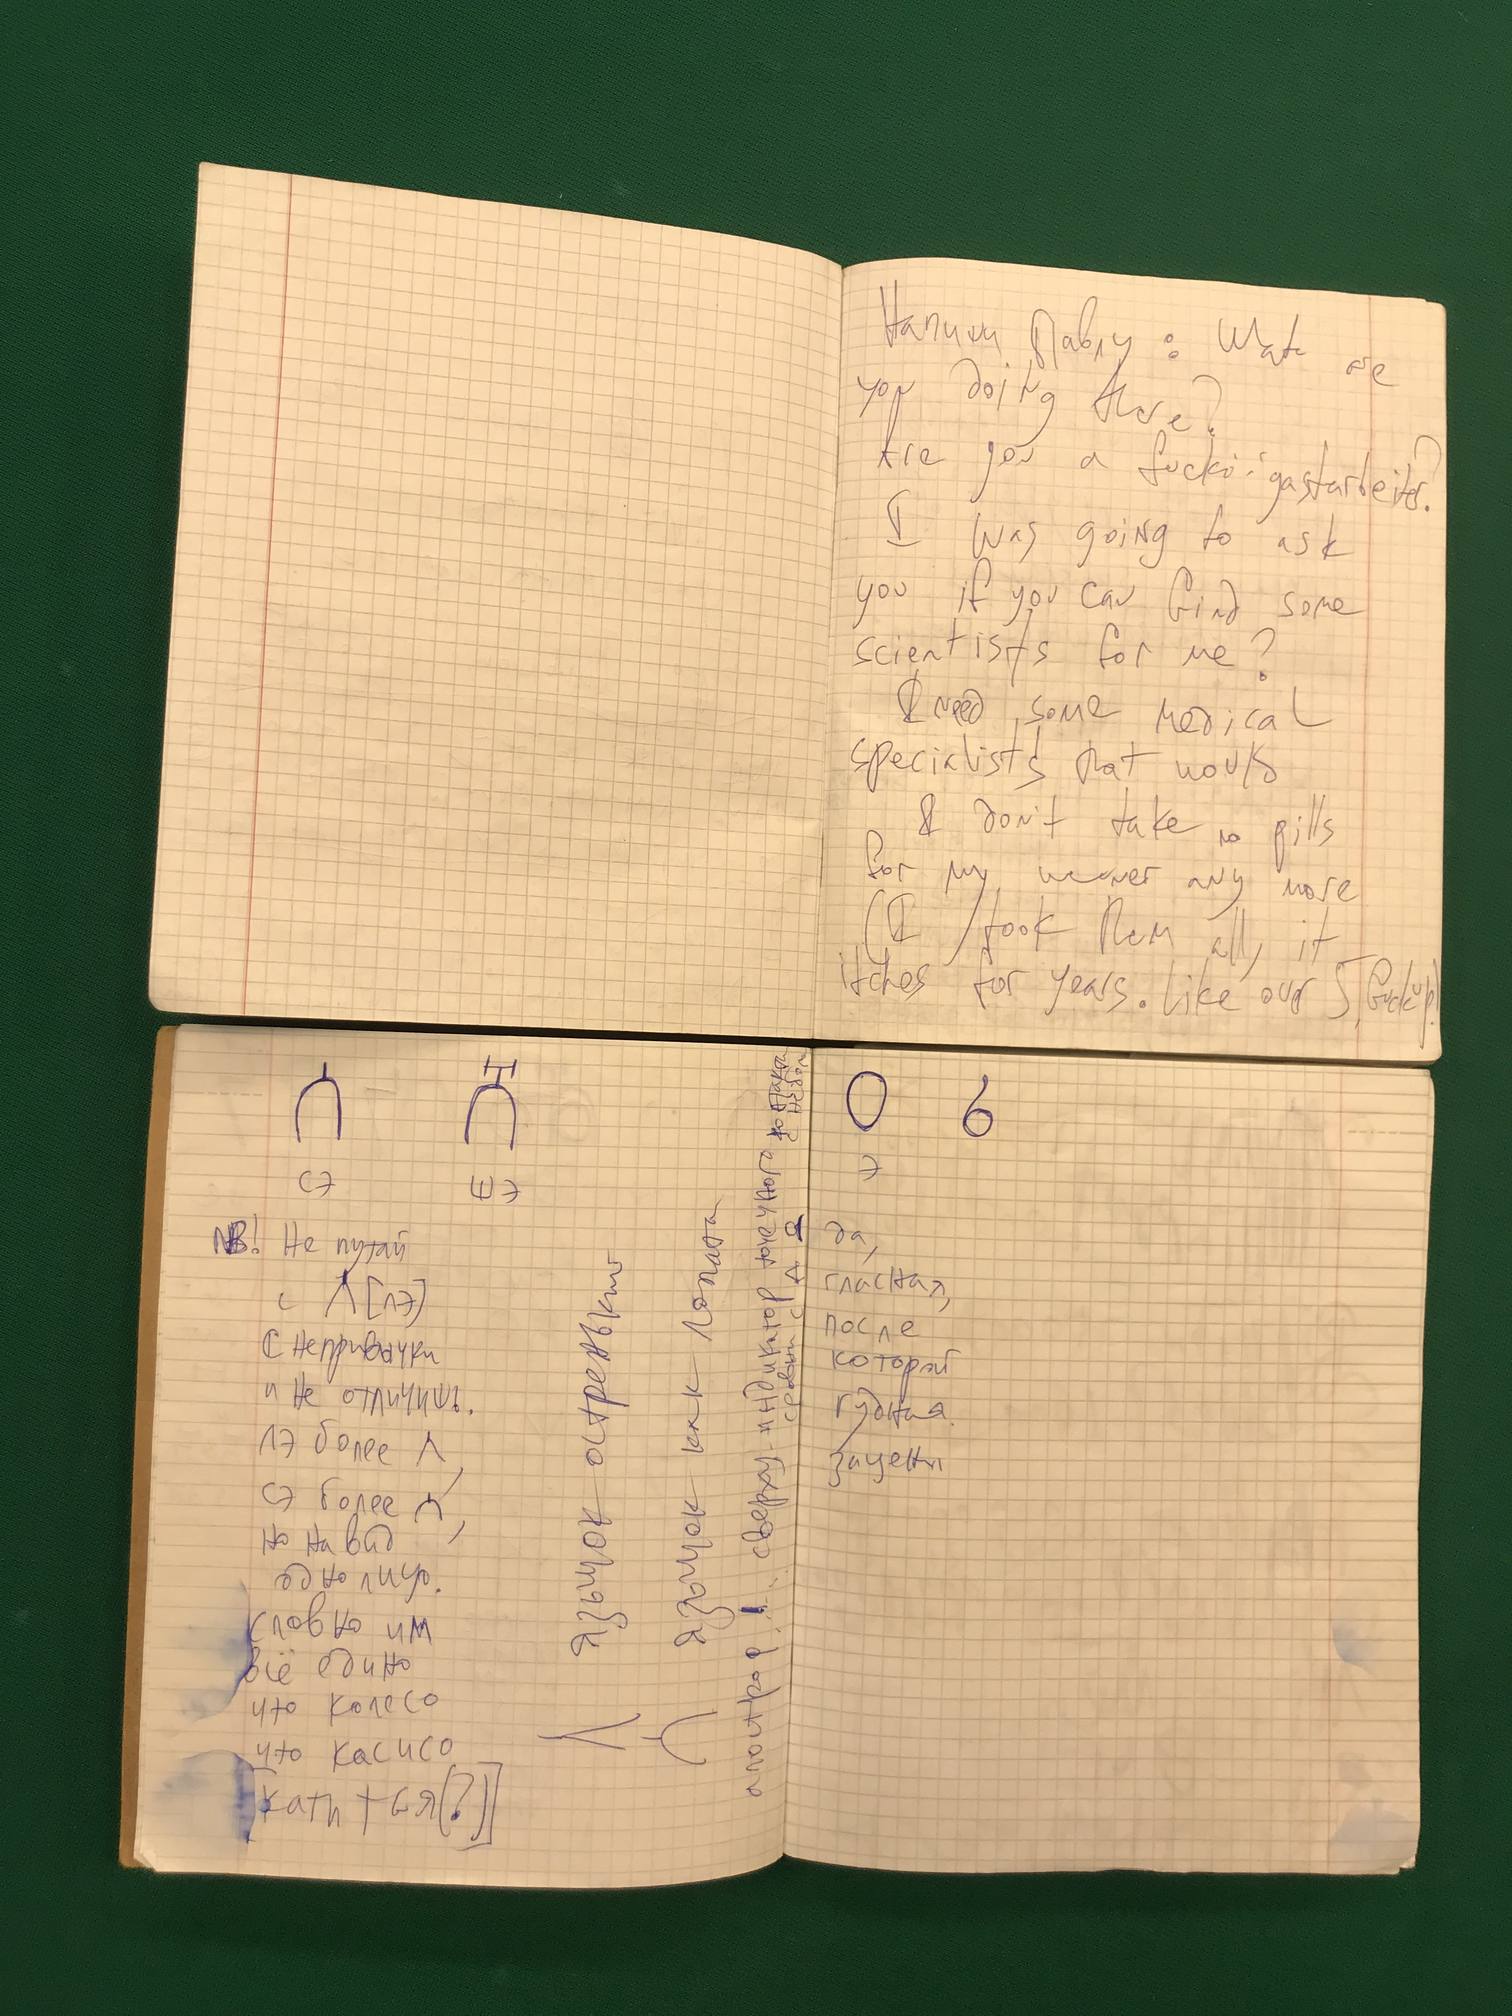 Напиши Павлу: Wat are
you doing there?
Are you a gastarbeiter?
I was going to ask
you if you can find some
scientists for me?
I need some medical
specialists that would
I don't take no pills
for my any more
(I took them all, it
itches for years. Like our 5, fuckup!
СЭ ШЭ
NB! Не путай
с Л [лэ]
С непривычки
и не отличишь.
ЛЭ более Λ,
СЭ более
но на вид
одно лицо.
словно им
всё едино
что колесо
что касисо
[кати + ся(?)]
язычок остренький
язычок как лопата
апостроф ! ... сверху - индикатор точечного контакта
сравни с Д с нёбом
О 6
Э
да,
гласная,
после
которой
губная.
зацени